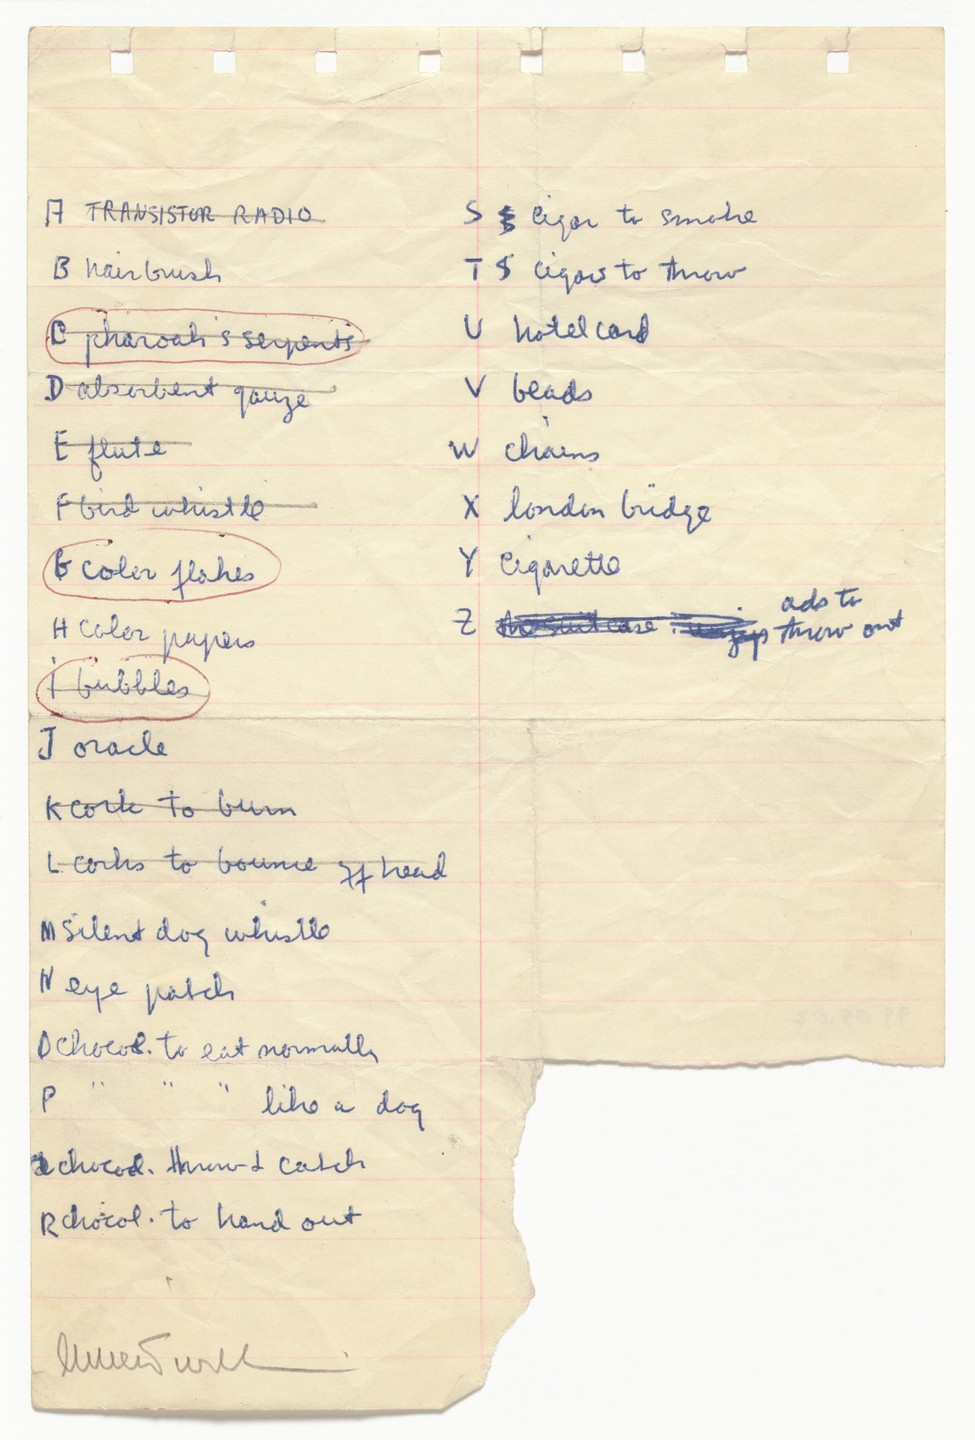 A TRANSISTOR RADIO
B hairbrush
C pharoah's serpents
D absorbent gauze
E flute
F bird whistle
G color flakes
H color papers
I bubbles
J oracle
K cork to burn
L corks to bounce off head
M Silent dog whistle
N eye patch
O chocol. to eat normally
P " " " like a dog
chocol. throw & catch
R chocol. to hand out
S cigar to smoke
T cigars to throw
U hotel card
V beads
W chains
X london bridge
Y Cigarette
Z suitcase
ads to
throw out